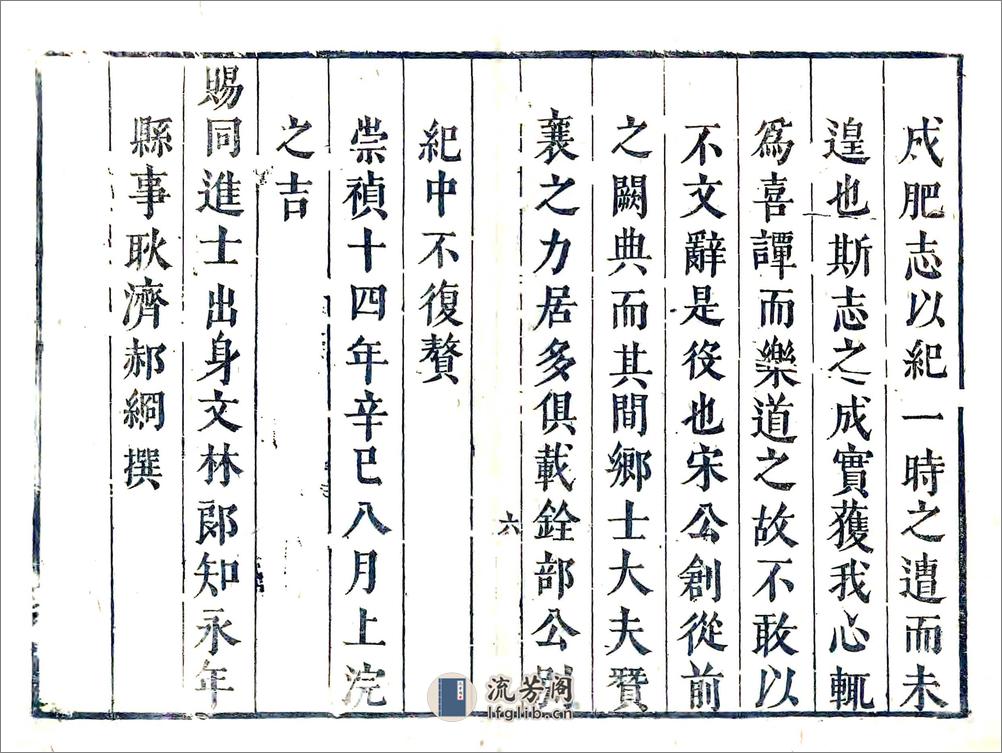 戍肥志以紀一時之遭而未
遑也斯志之成實獲我心輒
爲喜譚而樂道之故不敢以
不文辭是役也宋公創從前
之闕典而其間鄉士大夫贊
襄之力居多俱載銓部公別
六
紀中不復贅
崇禎十四年辛巳八月上浣
之吉
賜同進士出身文林郎知永年
縣事耿濟郝絅撰
流芳阁
lfglib.cn